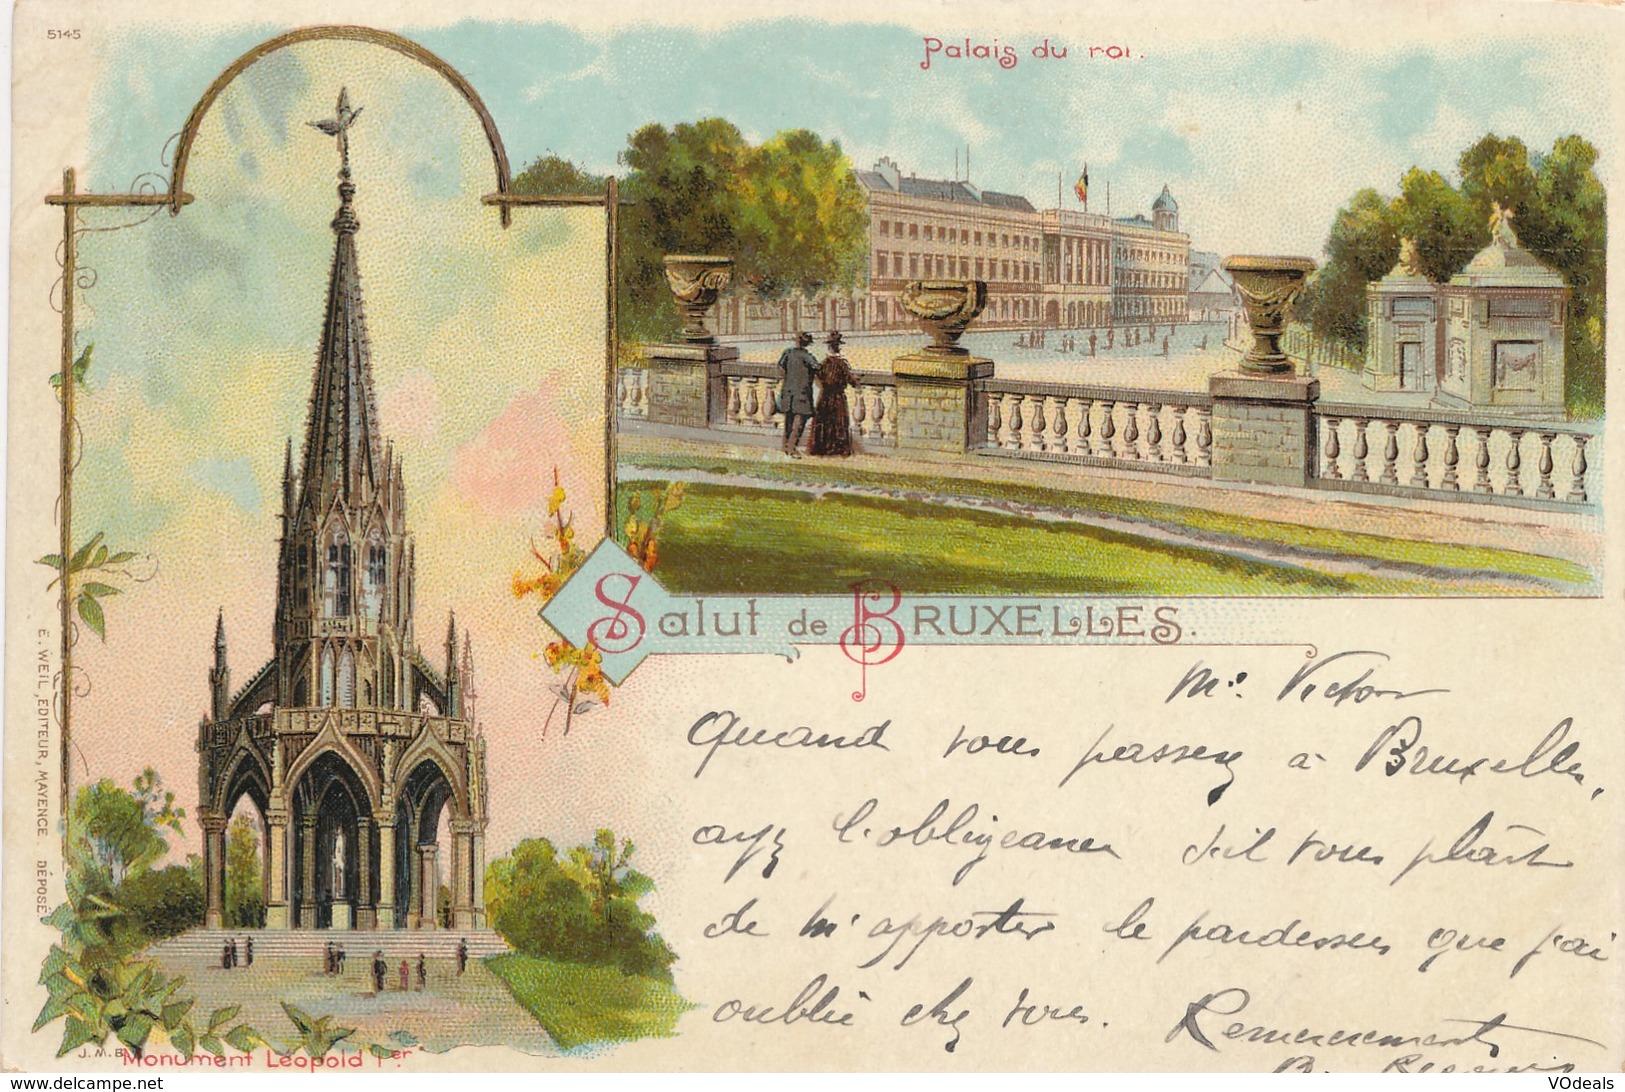 5145
Palais du roi.
Salut de BRUXELLES.
Mr. Victor
Quand vous passerez à Bruxelles,
ayez l'obligeance s'il vous plaît
de m'apporter le pardessus que j'ai
oublié chez vous. Remerciements
E. WEIL, EDITEUR, MAYENCE. DÉPOSÉ.
J.M.B.
Monument Léopold 1er.
VOdeals